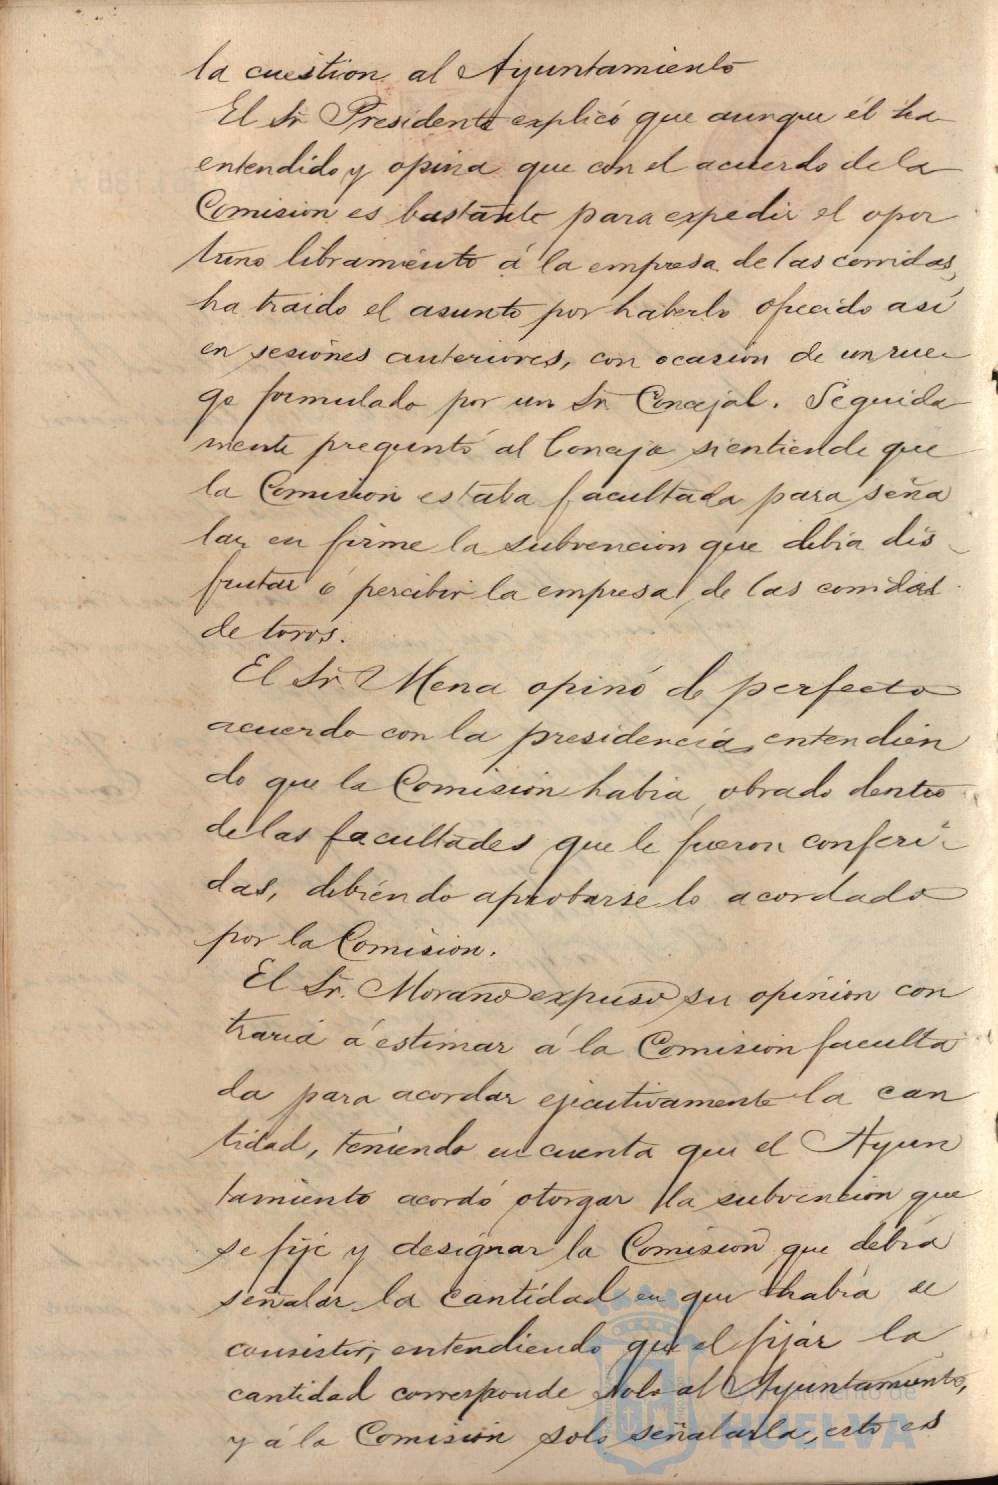 la cuestion al Ayuntamiento
El Sr Presidente explicó que aunque él ha
entendido y opina que con el acuerdo de la
Comision es bastante para expedir el opor
tuno libramiento á la empresa de las corridas,
ha traido el asunto por haberlo ofrecido así
en sesiones anteriores, con ocasión de un rue-
go formulado por un Sr Concejal. Seguida
mente preguntó al Concejo si entiende que
la Comision estaba facultada para seña
lar en firme la subvencion que debia dis-
frutar ó percibir la empresa de las corridas
de toros.
El Sr Mena opinó de perfecto
acuerdo con la presidencia, entendien
do que la Comisión habia obrado dentro
de las facultades que le fueron conferi-
das, debiendo aprobarse lo acordado
por la Comision.
El Sr. Morano expuso su opinion con
traria á estimar á la Comision faculta
da para acordar ejecutivamente la can
tidad, teniendo en cuenta que el Ayun
tamiento acordó otorgar la subvencion que
se fije y designar la Comisión que debía
señalar la cantidad en que habia de
consistir, entendiendo que el fijar la
cantidad corresponde solo al Ayuntamiento,
y á la Comisión solo señalarla, esto es
Ayuntamiento de
HUELVA